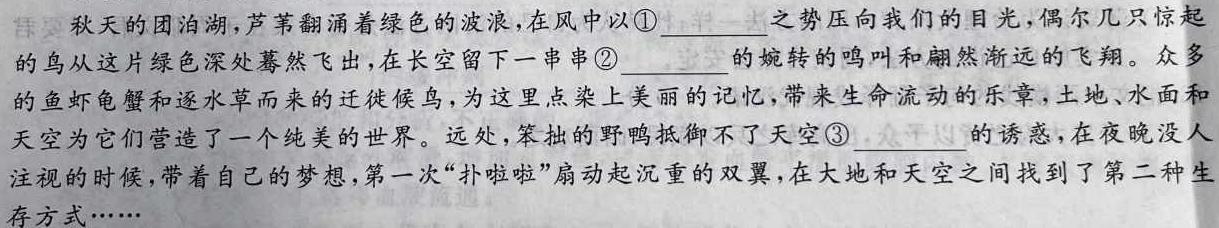 秋天的团泊湖,芦苇翻涌着绿色的波浪,在风中以①________之势压向我们的目光,偶尔几只惊起
的鸟从这片绿色深处蓦然飞出,在长空留下一串串②________的婉转的鸣叫和翩然渐远的飞翔。众多
的鱼虾龟蟹和逐水草而来的迁徙候鸟,为这里点染上美丽的记忆,带来生命流动的乐章,土地、水面和
天空为它们营造了一个纯美的世界。远处,笨拙的野鸭抵御不了天空③________的诱惑,在夜晚没人
注视的时候,带着自己的梦想,第一次“扑啦啦”扇动起沉重的双翼,在大地和天空之间找到了第二种生
存方式……